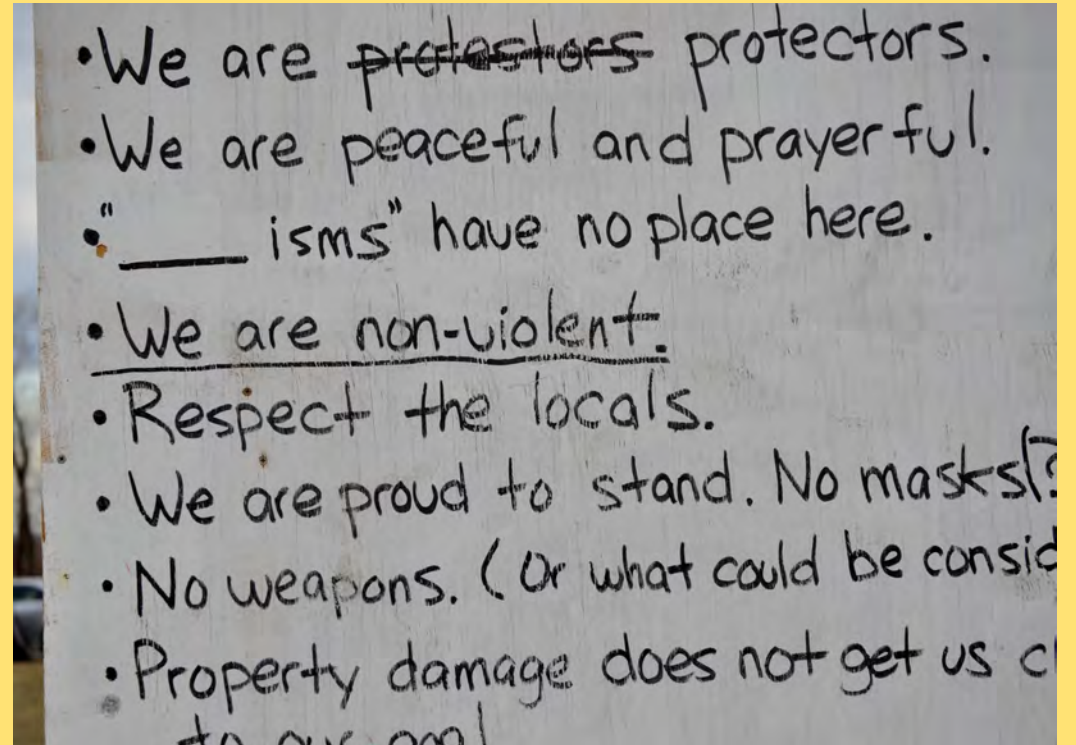 • We are protestors protectors.
• We are peaceful and prayerful.
• "____ isms" have no place here.
• We are non-violent.
• Respect the locals.
• We are proud to stand. No masks(?
• No weapons. (Or what could be consid
• Property damage does not get us cl
to our goal